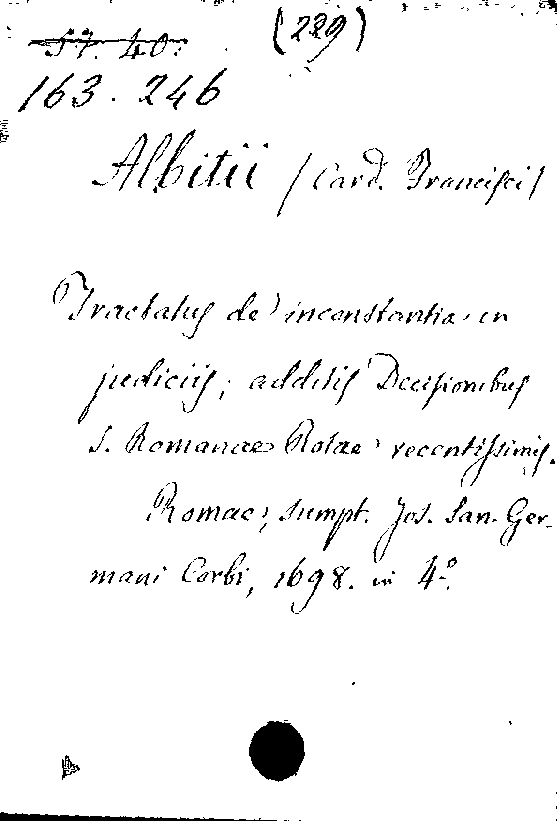 57. 40.
(229)
163. 246
Albitii / Card. Francisci /
Tractatus de inconstantia in
judiciis; additis Decisionibus
S. Romanae Rotae recentissimis.
Romae, sumpt. Jos. San-Ger-
mani Corbi, 1698. in 4º.